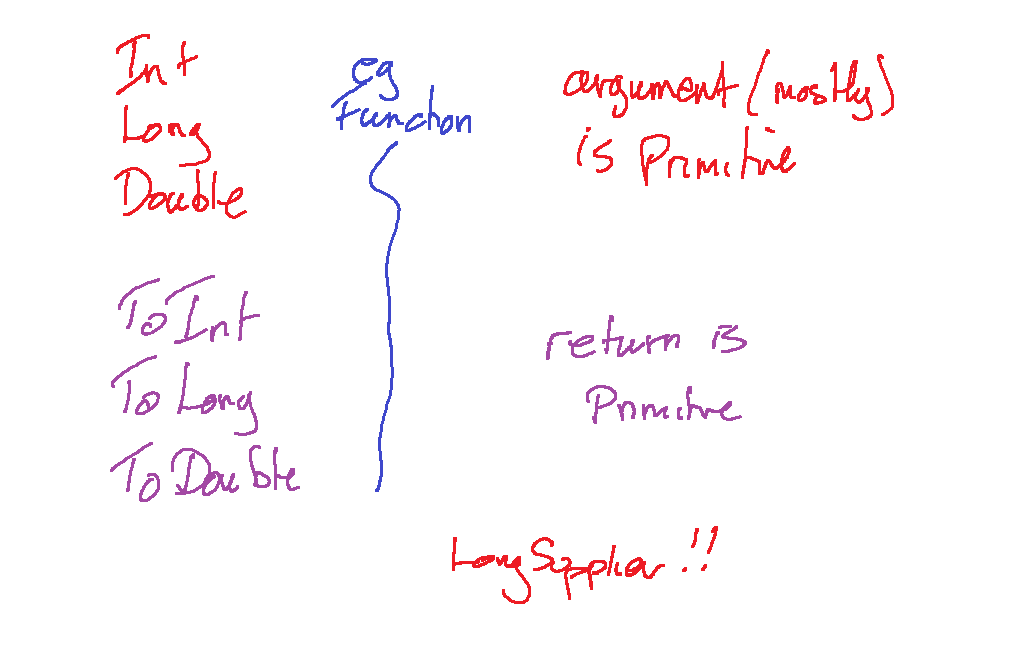 Int
Long
Double
eg
Function
argument (mostly)
is Primitive
To Int
To Long
To Double
return is
Primitive
LongSupplier !!